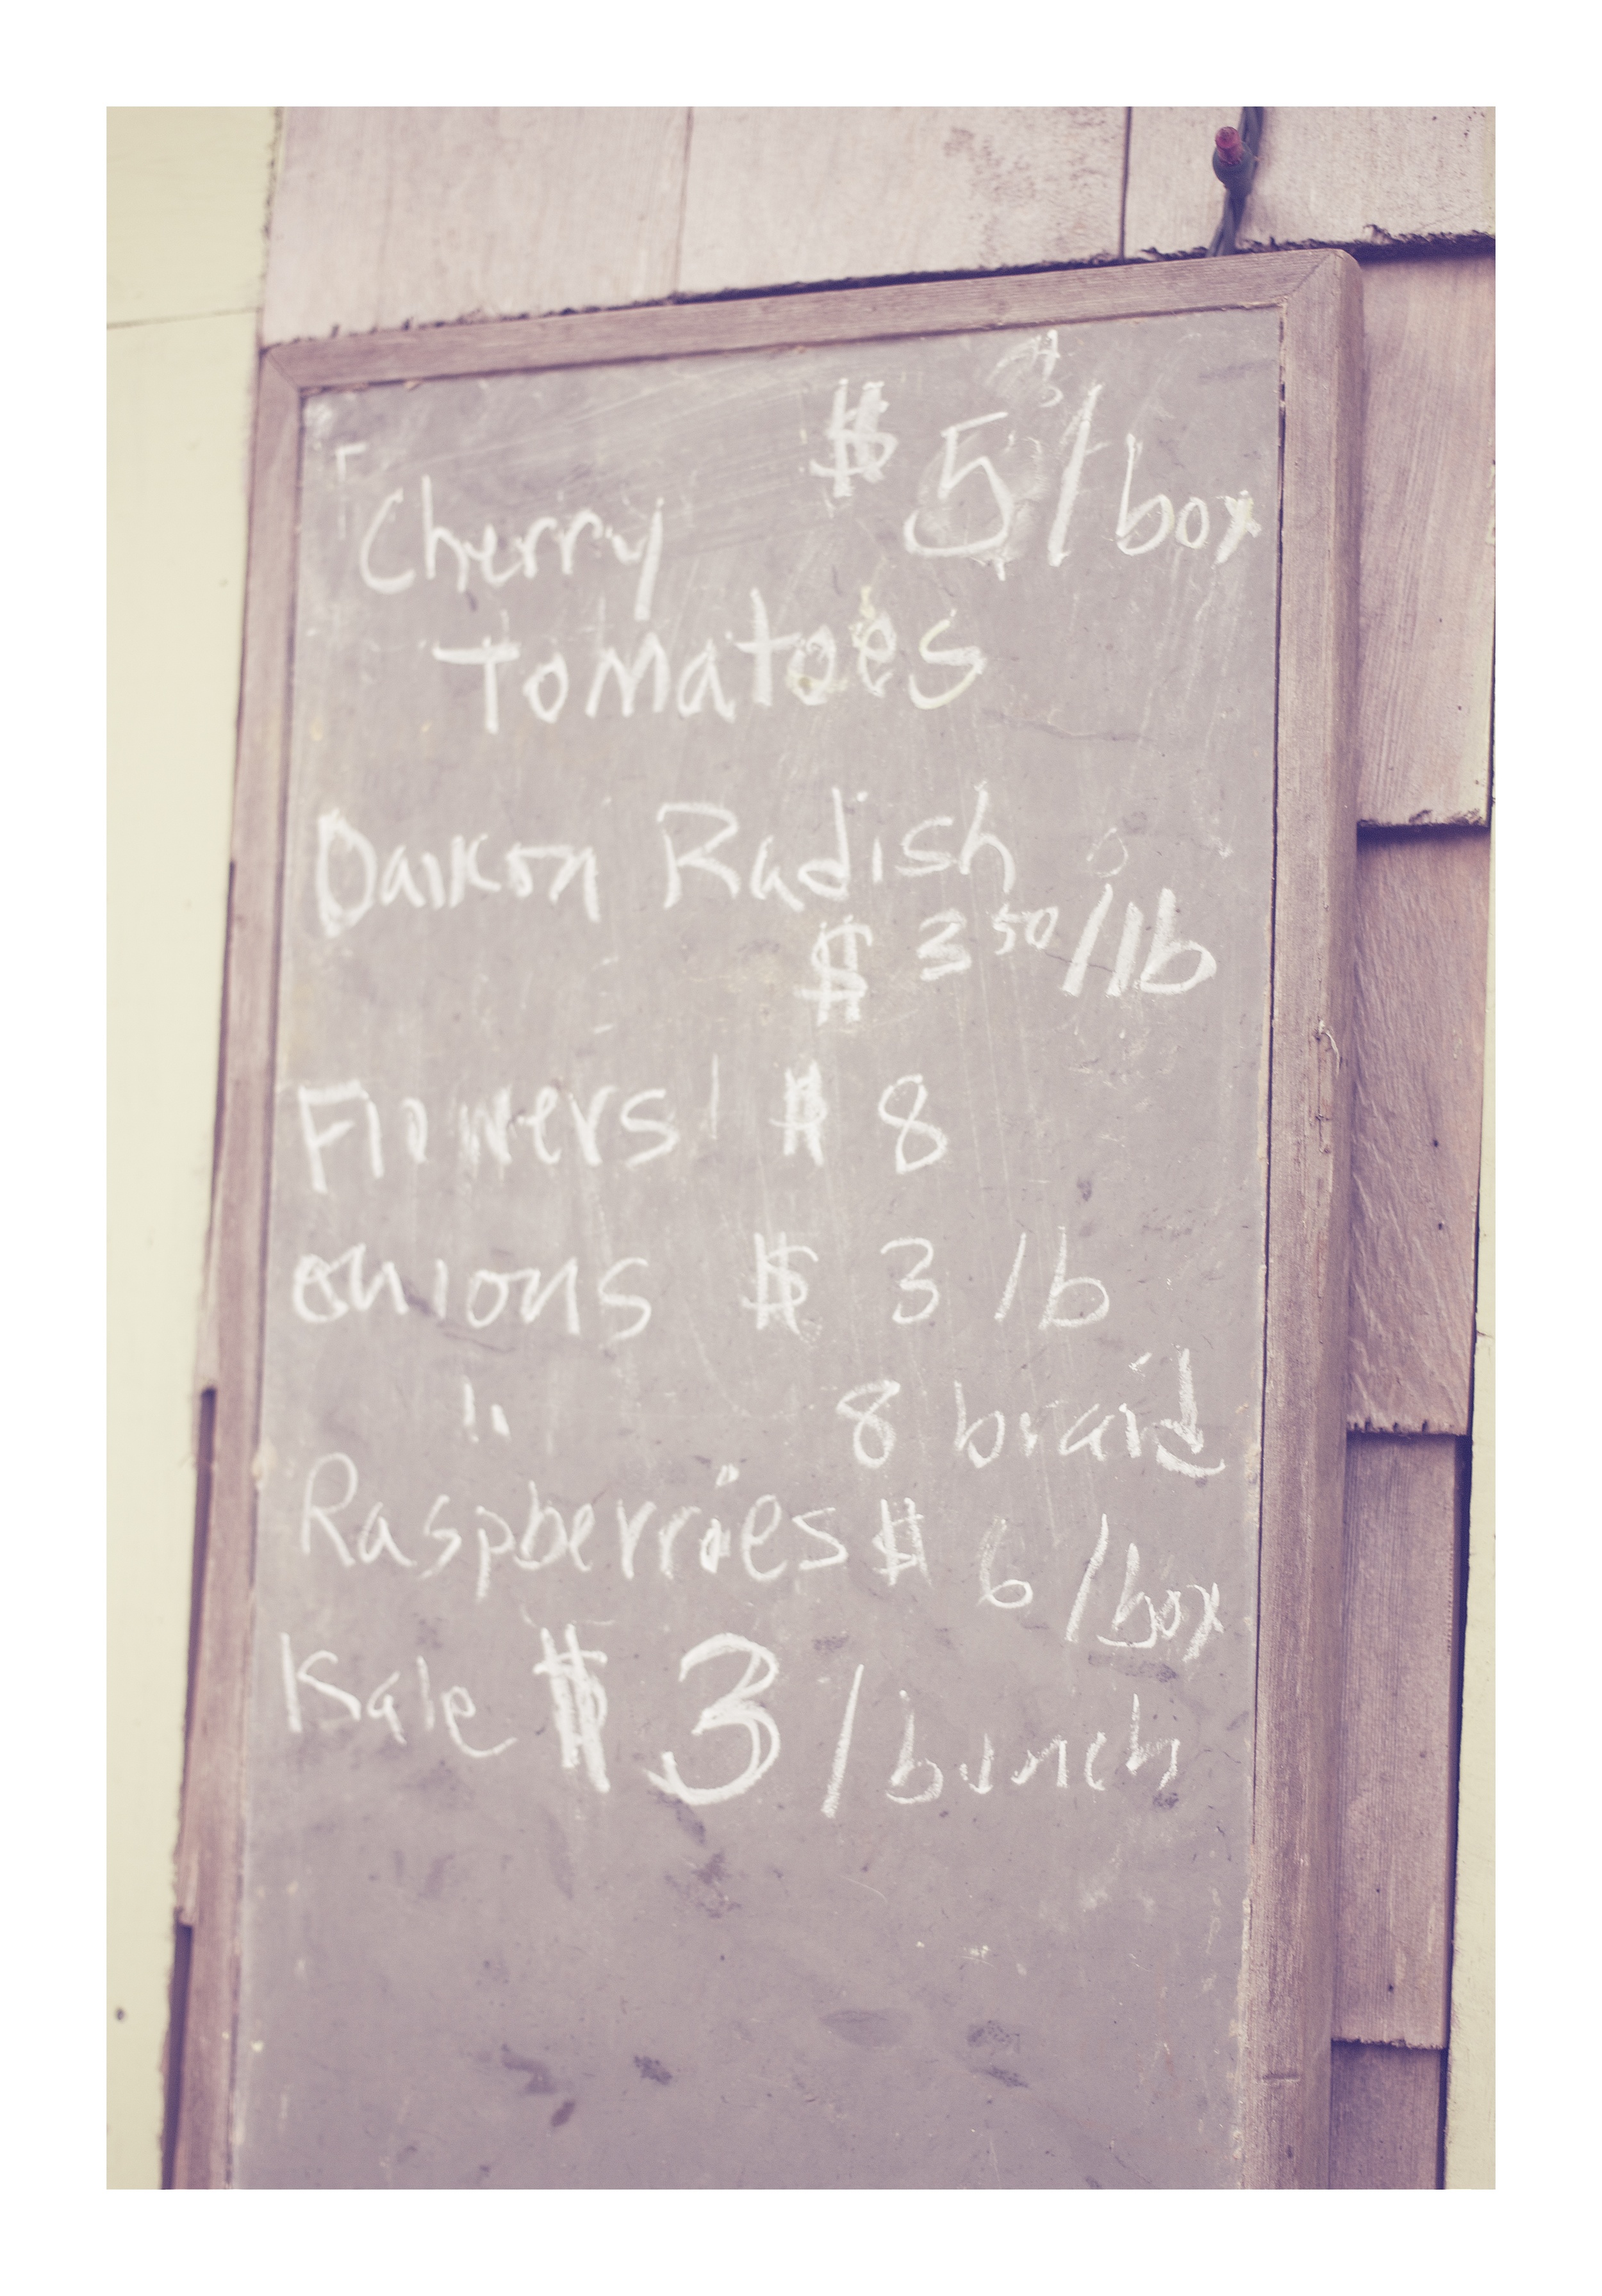 Cherry $ 5/box
Tomatoes
Daikon Radish
$ 3 50/lb
Flowers $ 8
onions $ 3 lb
" 8 braid
Raspberries $ 6 /box
Kale $ 3 /bunch